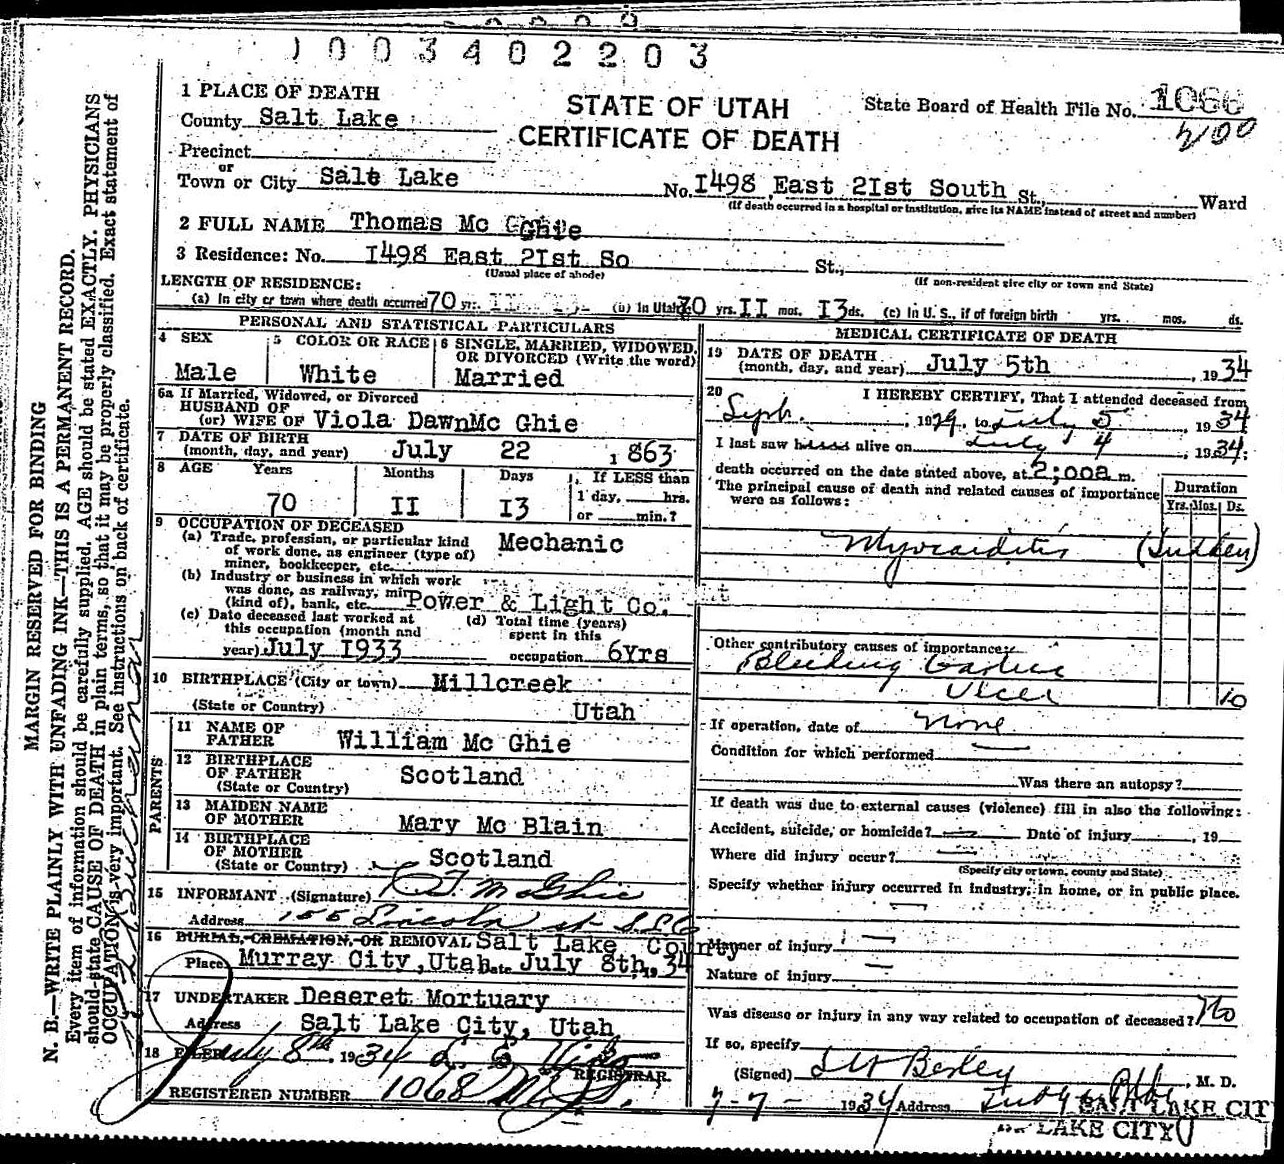 1003402203
1 PLACE OF DEATH
County Salt Lake
STATE OF UTAH
CERTIFICATE OF DEATH
State Board of Health File No. 1066
2100
Precinct
or
Town or City Salt Lake No. I498 East 2Ist South St., Ward
(If death occurred in a hospital or institution, give its NAME instead of street and number)
2 FULL NAME Thomas Mc Ghie
3 Residence: No. I498 East 2Ist So St.,
(Usual place of abode) (If non-resident give city or town and State)
LENGTH OF RESIDENCE:
(a) In city or town where death occurred 70 yrs. II I3 (b) In Utah 70 yrs. II mos. I3 ds. (c) In U. S., if of foreign birth yrs. mos. ds.
PERSONAL AND STATISTICAL PARTICULARS
4 SEX
Male
5 COLOR OR RACE
White
6 SINGLE, MARRIED, WIDOWED, OR DIVORCED (Write the word)
Married
6a If Married, Widowed, or Divorced
HUSBAND OF
(or) WIFE OF Viola DawnMc Ghie
7 DATE OF BIRTH
(month, day, and year) July 22 1863
8 AGE Years Months Days If LESS than
70 II I3 1 day, hrs.
or min.?
9 OCCUPATION OF DECEASED
(a) Trade, profession, or particular kind of work done, as engineer (type of) miner, bookkeeper, etc. Mechanic
(b) Industry or business in which work was done, as railway, mine (kind of), bank, etc. Power & Light Co.
(c) Date deceased last worked at this occupation (month and year) July I933
(d) Total time (years) spent in this occupation 6Yrs
10 BIRTHPLACE (City or town) Millcreek
(State or Country) Utah
PARENTS
11 NAME OF FATHER William Mc Ghie
12 BIRTHPLACE OF FATHER Scotland
(State or Country)
13 MAIDEN NAME OF MOTHER Mary Mc Blain
14 BIRTHPLACE OF MOTHER Scotland
(State or Country)
15 INFORMANT (Signature) McGhie
Address 155 Lincoln st S.L.C
16 BURIAL, CREMATION, OR REMOVAL Salt Lake County
Place Murray City, Utah Date July 8th, 1934
17 UNDERTAKER Deseret Mortuary
Address Salt Lake City, Utah
18 FILED July 8th 1934
REGISTRAR.
REGISTERED NUMBER 1068
MEDICAL CERTIFICATE OF DEATH
19 DATE OF DEATH
(month, day, and year) July 5th, 1934
20 I HEREBY CERTIFY, That I attended deceased from
Sept. 1929, to July 5 1934
I last saw him alive on July 4, 1934;
death occurred on the date stated above, at 2;00a m.
The principal cause of death and related causes of importance were as follows:
Duration
Yrs. Mos. Ds.
Myocarditis (Sudden)
Other contributory causes of importance:
Bleeding Gastric
Ulcer 10
If operation, date of None
Condition for which performed
Was there an autopsy?
If death was due to external causes (violence) fill in also the following:
Accident, suicide, or homicide? Date of injury , 19
Where did injury occur?
(Specify city or town, county and State)
Specify whether injury occurred in industry, in home, or in public place.
Manner of injury
Nature of injury
Was disease or injury in any way related to occupation of deceased? No
If so, specify
(Signed) , M. D.
7-7- 1934 Address
SALT LAKE CIT
LAKE CITY
MARGIN RESERVED FOR BINDING
N. B.—WRITE PLAINLY WITH UNFADING INK—THIS IS A PERMANENT RECORD.
Every item of information should be carefully supplied. AGE should be stated EXACTLY. PHYSICIANS
should state CAUSE OF DEATH in plain terms, so that it may be properly classified. Exact statement of
OCCUPATION is very important. See instructions on back of certificate.